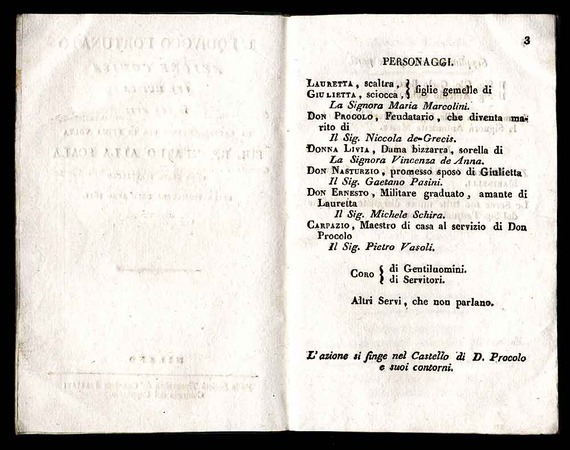 3
PERSONAGGI.
LAURETTA, scaltra, } figlie gemelle di
GIULIETTA, sciocca, }
La Signora Maria Marcolini.
DON PROCOLO, Feudatario, che diventa ma-
rito di
Il Sig. Niccola de-Grecis.
DONNA LIVIA, Dama bizzarra, sorella di
La Signora Vincenza de Anna.
DON NASTURZIO, promesso sposo di Giulietta
Il Sig. Gaetano Pasini.
DON ERNESTO, Militare graduato, amante di
Lauretta
Il Sig. Michele Schira.
CARPAZIO, Maestro di casa al servizio di Don
Procolo
Il Sig. Pietro Vasoli.
CORO { di Gentiluomini.
{ di Servitori.
Altri Servi, che non parlano.
L'azione si finge nel Castello di D. Procolo
e suoi contorni.